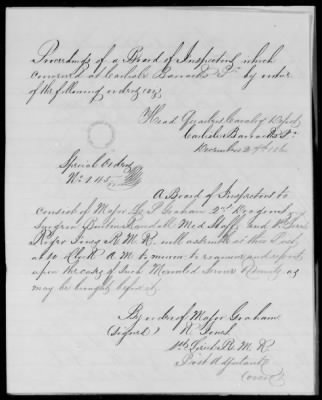 Proceedings of a Board of Inspectors which
convened at Carlisle Barracks Pa by order
of the following orders viz,
Head Quarters Cavalry Depot
Carlisle Barracks Pa
December
Special Orders
No 145
A Board of Inspectors to
consist of Major L. P. Graham 2nd Dragoons
Surgeon Burton Randall Med Staff and
Roger Jones R. M. R. will assemble at this Post
at 10 O'clock A. M. to examine and report
upon the case of Such Mounted Service Recruits as
may be brought before it
By order of Major Graham
(Signed) R Jones
Lieut R. M. R.
Post Adjutant
(over)